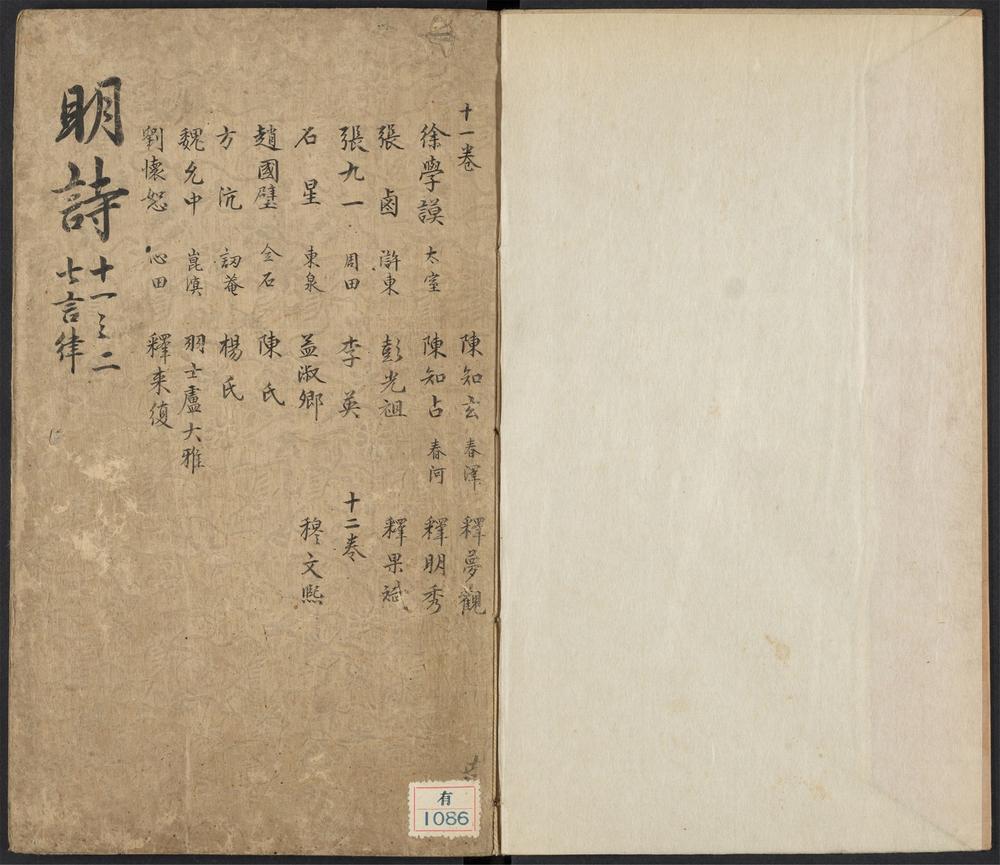 十一卷
徐學謨 太室
張鹵 滸東
張九一 周田
石星 東泉
趙國璧 仝石
方沆 訒菴
魏允中 崑溟
劉懷恕 心田
陳知玄 春澤
陳知占 春河
彭光祖
李英
孟淑卿
陳氏
楊氏
羽士盧大雅
釋來復
釋夢觀
釋明秀
釋果斌
十二卷
穆文熙
明詩
十一之二
七言律
有
1086